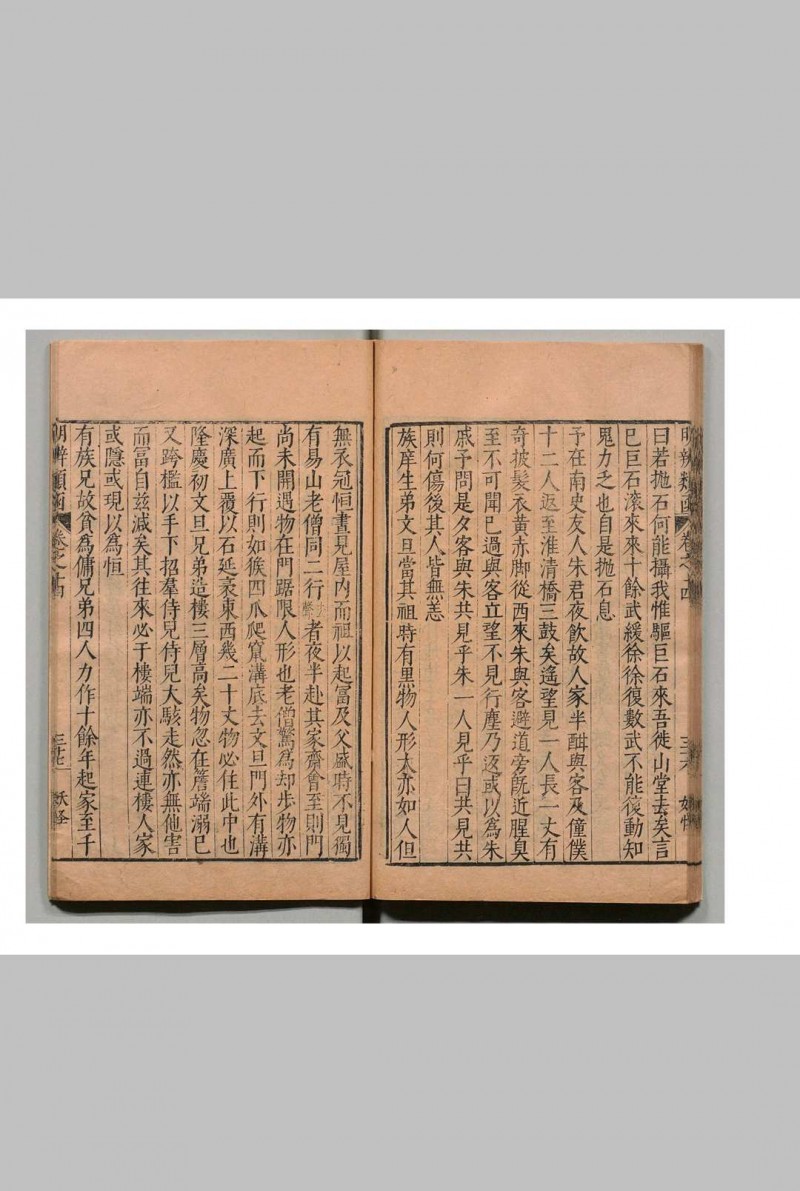 明辨類函 卷之十四 三十六 妖怪
曰若拋石何能攝我惟驅巨石來吾徙山堂去矣言
已巨石滾來來十餘武緩徐徐復數武不能復動知
鬼力乏也自是拋石息
予在南史友人朱君夜飲故人家半酣與客及僮僕
十二人返至淮清橋三鼓矣遙望見一人長一丈有
奇披髮衣黃赤脚從西來朱與客避道旁旣近腥臭
至不可聞已過與客立望不見行塵乃返或以爲朱
戚予問是夕客與朱共見乎朱一人見乎曰共見共
則何傷後其人皆無恙
族庠生弟文旦當其祖時有黑物人形太亦如人但
無衣冠恒晝見屋内而祖以起冨及父戚時不見獨
有易山老僧同二行者夜半赴其家齋會至則門
尚未開遇物在門踞限人形也老僧驚爲却步物亦
起而下行則如猴四爪爬竄溝底去文旦門外有溝
深廣上覆以石延袤東西幾二十丈物必住此中也
隆慶初文旦兄弟造樓三層高矣物忽在簷端溺已
又跨檻以手下招羣侍兒侍兒大駭走然亦無他害
而冨自玆減矣其徃來必于樓端亦不過連樓人家
或隱或現以爲恒
有族兄故貧爲傭兄弟四人力作十餘年起家至千
明辨類函 卷之十四 三十七 妖怪